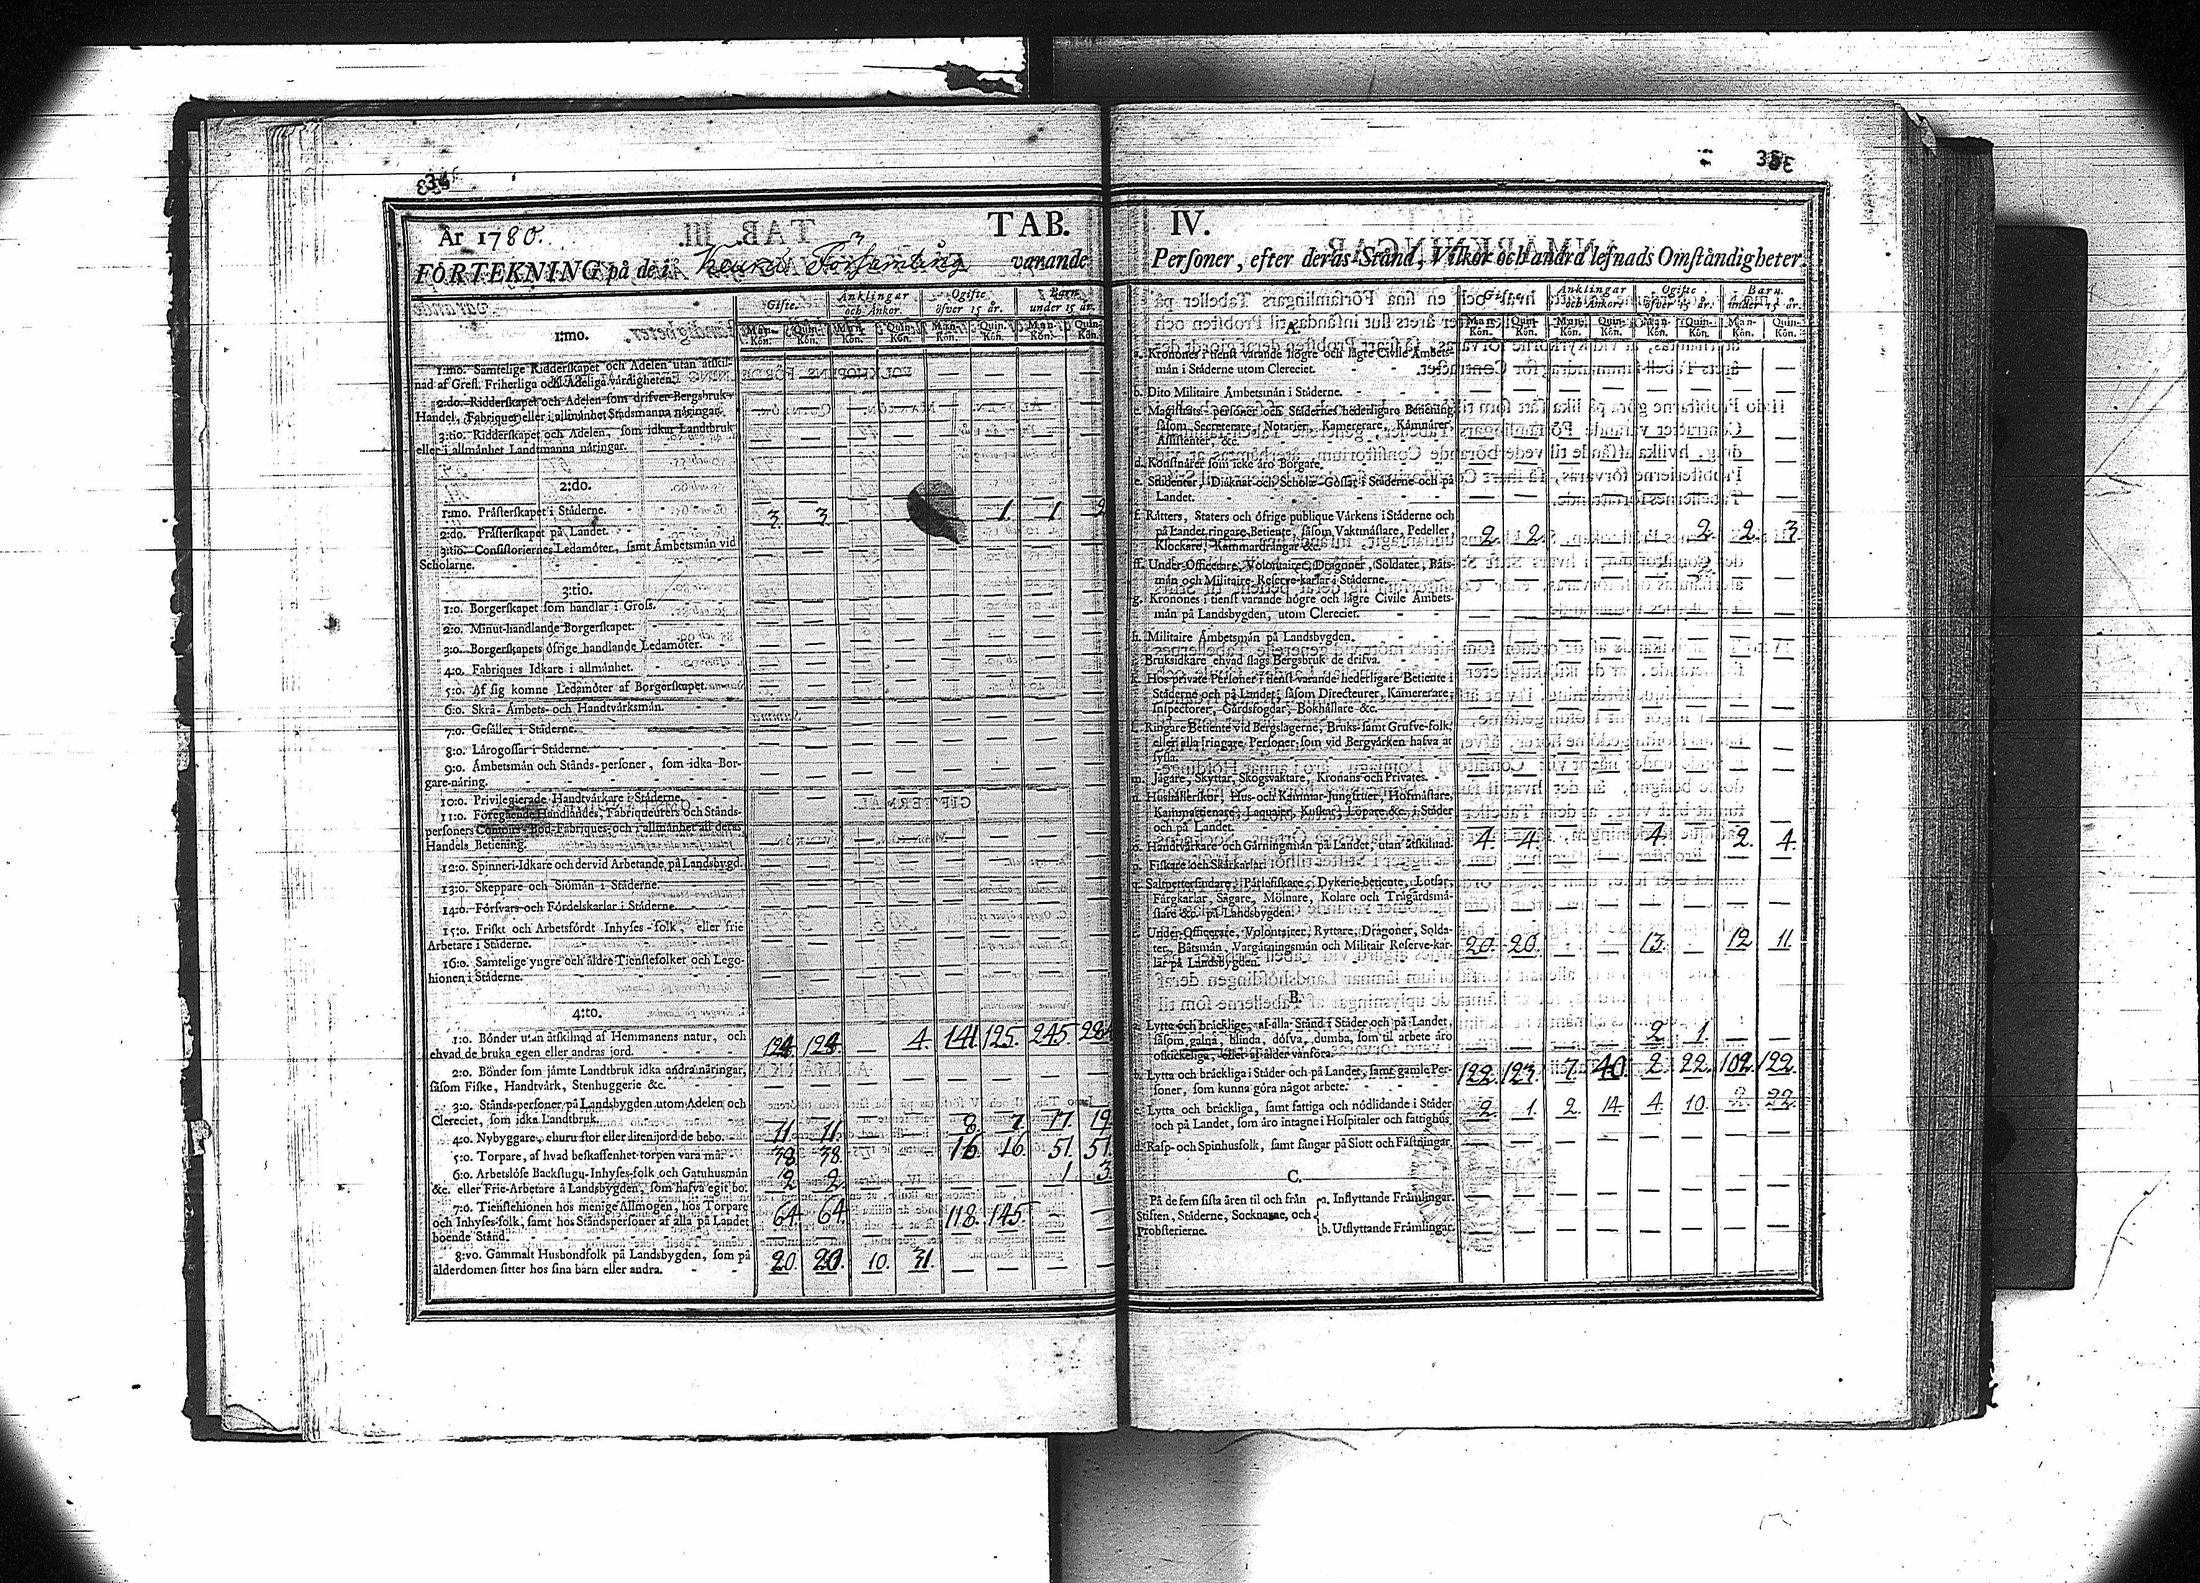 TAB.
År 1780.
FÖRTEKNING på de i Församling varande
Gifte. Änklingar och Änkor. Ogifte öfver 15 år. Barn under 15 år.
Man-Kön. Quin-Kön. Man-Kön. Quin-Kön. Man-Kön. Quin-Kön. Man-Kön. Quin-Kön.
1:mo.
1:mo. Samtelige Ridderskapet och Adelen utan åtskil-
nad af Grefl. Friherliga och Adeliga värdigheten.
2:do. Ridderskapet och Adelen som drifver Bergsbruk
Handel, Fabriquer eller i allmånhet Stadsmanna näringar.
3:tio. Ridderskapet och Adelen, som idkar Landtbruk
eller i allmånhet Landtmanna näringar.
2:do.
1:mo. Pråsterskapet i Ståderne.
3. 3. 1. 1.
2:do. Pråsterskapet på Landet.
3:tio. Consistoriernes Ledamöter, samt Ämbetsmån vid
Scholarne.
3:tio.
1:o. Borgerskapet som handlar i Gross.
2:o. Minut-handlande Borgerskapet.
3:o. Borgerskapets öfrige handlande Ledamöter.
4:o. Fabriques Idkare i allmånhet.
5:o. Af sig komne Ledamöter af Borgerskapet.
6:o. Skrå- Ämbets- och Handtvårksmån.
7:o. Gesåller i Ståderne.
8:o. Lårogossar i Ståderne.
9:o. Ämbetsmån och Stånds-personer, som idka Bor-
gare-nåring.
10:o. Privilegierade Handtvårkare i Ståderne.
11:o. Föregående Handlandes, Fabriqueurers och Stånds-
personers Contoirs- Bod- Fabriques- och i allmånhet all deras
Handels Betiening.
12:o. Spinneri-Idkare och dervid Arbetande på Landsbygd.
13:o. Skeppare och Siömån i Ståderne.
14:o. Försvars- och Fördelskarlar i Ståderne.
15:o. Friskt och Arbetsfördt Inhyses-folk, eller frie
Arbetare i Ståderne.
16:o. Samtelige yngre och åldre Tienstefolket och Lego-
hionen i Ståderne.
4:to.
1:o. Bönder utan åtskilnad af Hemmanens natur, och
ehvad de bruka egen eller andras jord.
4. 141. 125. 245.
2:o. Bönder som jåmte Landtbruk idka andra nåringar,
såsom Fiske, Handtvårk, Stenhuggerie &c.
3:o. Stånds-personer på Landsbygden utom Adelen och
Clereciet, som idka Landtbruk.
4:o. Nybyggare, ehuru stor eller liten jord de bebo.
11. 11. 8. 7. 17. 19
5:o. Torpare, af hvad beskaffenhet torpen vara må.
38. 38. 16. 16. 51. 51.
6:o. Arbetslöse Backstugu- Inhyses-folk och Gatuhusmån
&c. eller Frie-Arbetare å Landsbygden, som hafva egit bo.
2. 2. 1. 3.
7:o. Tienstehionen hos menige Allmogen, hos Torpare
och Inhyses-folk, samt hos Ståndspersoner af alla på Landet
boende Stånd.
64. 64. 118. 145.
8:vo. Gammalt Husbondfolk på Landsbygden, som på
ålderdomen sitter hos sina barn eller andra.
20. 20. 10. 31.
IV.
Personer, efter deras Stånd, Vilkor och andra lefnads Omständigheter.
Gifte. Änklingar och Änkor. Ogifte öfver 15 år. Barn. under 15 år.
Man-Kön. Quin-Kön. Man-Kön. Quin-Kön. Man-Kön. Quin-Kön. Man-Kön. Quin-Kön.
A.
a. Kronones i tienst varande högre och lågre Civile Ämbets-
mån i Ståderne utom Clereciet.
b. Dito Militaire Ämbetsmån i Ståderne.
c. Magistrats-personer och Stådernes hederligare Betiening
såsom Secreterare, Notarier, Kamererare, Kåmnårer,
Assistenter, &c.
d. Konstnårer som icke åro Borgare.
e. Studenter, Diåknar och Schole-Gossar i Ståderne och på
Landet.
f. Råtters, Staters och öfrige publique Vårkens i Ståderne och
på Landet ringare Betiente, såsom Vaktmåstare, Pedeller,
Klockare, Kammardrångar &c.
2. 2. 2. 2. 3.
ff. Under-Officerare, Volontairer, Dragoner, Soldater, Båts-
mån och Militaire-Reserve-karlar i Ståderne.
g. Kronones i tienst varande högre och lågre Civile Ämbets-
mån på Landsbygden, utom Clereciet.
h. Militaire Ämbetsmån på Landsbygden.
i. Bruksidkare ehvad slags Bergsbruk de drifva.
k. Hos private Personer i tienst varande hederligare Betiente i
Ståderne och på Landet; såsom Directeurer, Kamererare,
Inspectorer, Gårdsfogdar, Bokhållare &c.
l. Ringare Betiente vid Bergslagerne, Bruks- samt Grufve-folk,
eller alla ringare Personer som vid Bergvårken hafva at
syssla.
m. Jågare, Skyttar, Skogsvaktare, Kronans och Privates.
n. Hushållerskor, Hus- och Kammar-Jungfruer, Hofmåstare,
Kammartienare, Laquaier, Kuskar, Löpare &c. i Ståder
och på Landet.
o. Handtvårkare och Gårningsmån på Landet, utan åtskilnad.
4. 4. 4. 2. 4.
p. Fiskare och Skårkarlar.
q. Saltpettersiudare, Pårlefiskare, Dykerie-betiente, Lotsar,
Fårgkarlar, Sågare, Mölnare, Kolare och Trågårdsmå-
stare &c. på Landsbygden.
r. Under-Officerare, Volontairer, Ryttare, Dragoner, Solda-
ter, Båtsmån, Vargåringsmån och Militair Reserve-kar-
lar på Landsbygden.
20. 20. 13. 12 11.
B.
a. Lytte och bråcklige, af alla Stånd i Ståder och på Landet,
såsom galna, blinda, döfva, dumba, som til arbete åro
oskickeliga, eller af ålder vanföra.
2 1.
b. Lytta och bråckliga i Ståder och på Landet, samt gamle Per-
soner, som kunna göra något arbete.
122. 123. 7. 40. 2. 22. 102. 122.
c. Lytta och bråckliga, samt fattiga och nödlidande i Ståder
och på Landet, som åro intagne i Hospitaler och fattighus.
2. 1. 2. 14. 4. 10. 2. 22.
d. Rasp- och Spinhusfolk, samt fångar på Slott och Fåstningar.
C.
På de fem sista åren til och från
Stiften, Ståderne, Socknarne, och
Probsterierne.
a. Inflyttande Fråmlingar.
b. Utflyttande Fråmlingar.